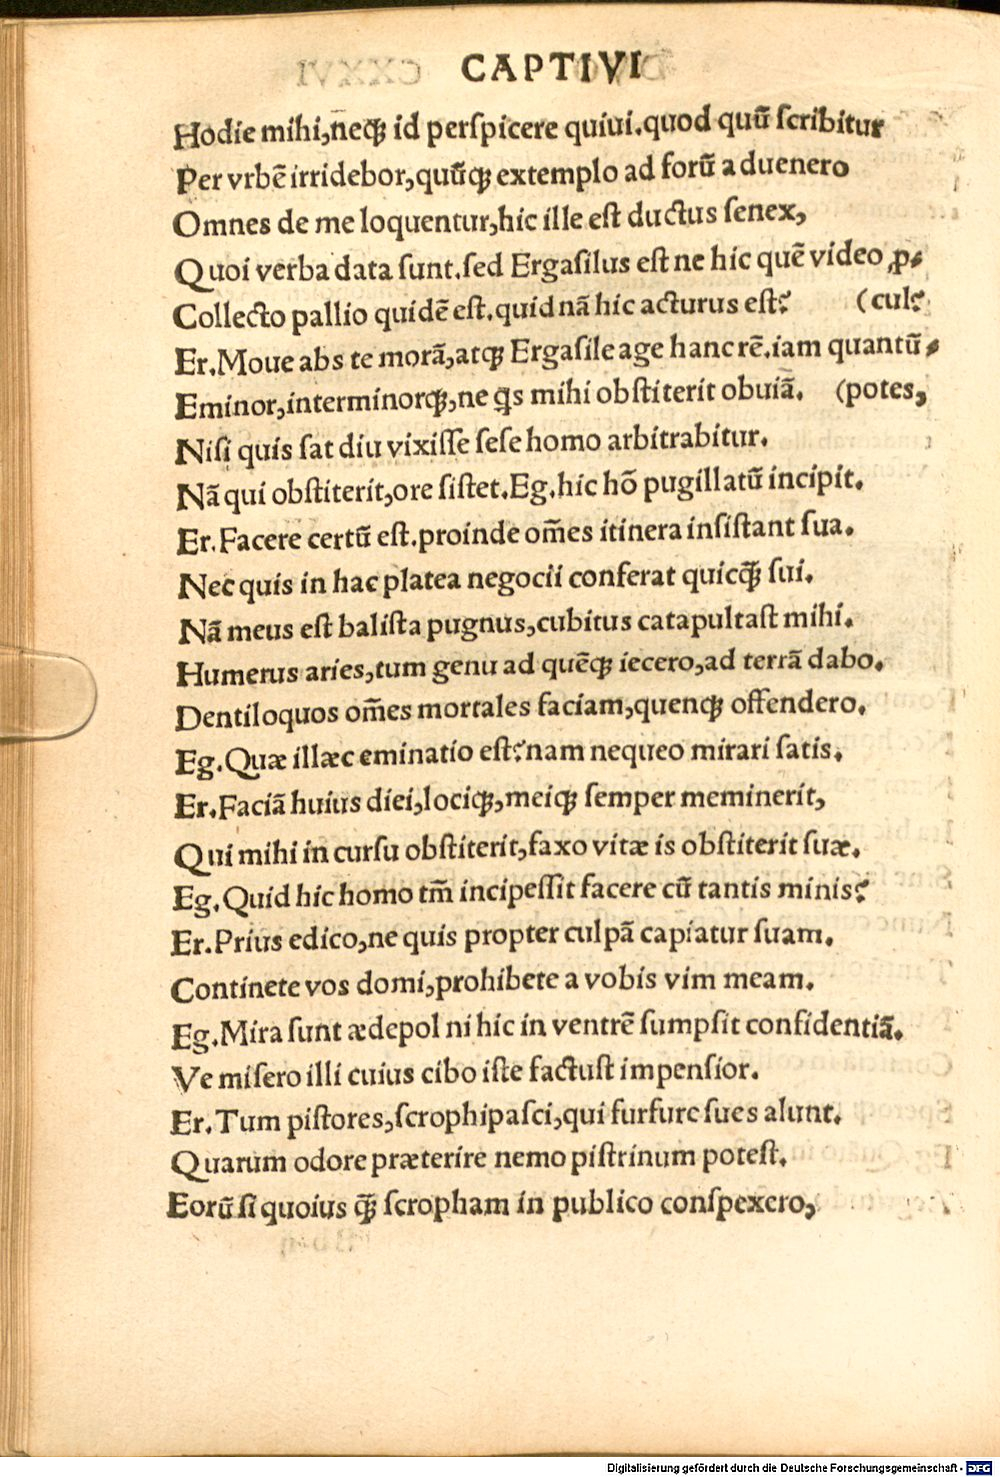 CAPTIVI
Hodie mihi,neqꝫ id perſpicere quiui.quod quū ſcribitur
Per vrbē irridebor,quūqꝫ extemplo ad forū aduenero
Omnes de me loquentur,hic ille eſt ductus ſenex,
Quoi verba data ſunt.ſed Ergaſilus eſt ne hic quē video ,p⸗
Collecto pallio quidē eſt.quid nā hic acturus eſt? (cul?
Er.Moue abs te morā,atqꝫ Ergaſile age hanc rē.iam quantū⸗
Eminor,interminorqꝫ,ne qs mihi obſtiterit obuiā. (potes,
Niſi quis ſat diu vixiſſe ſeſe homo arbitrabitur.
Nā qui obſtiterit,ore ſiſtet.Eg.hic hō pugillatū incipit.
Er.Facere certū eſt.proinde om̄es itinera inſiſtant ſua.
Nec quis in hac platea negocii conferat quicq̄ꝫ ſui.
Nā meus eſt baliſta pugnus,cubitus catapultaſt mihi.
Humerus aries,tum genu ad quēqꝫ iecero,ad terrā dabo.
Dentiloquos om̄es mortales faciam,quenqꝫ offendero.
Eg.Quæ illæc eminatio eſt?nam nequeo mirari ſatis.
Er.Faciā huius diei,lociqꝫ,meiqꝫ ſemper meminerit,
Qui mihi in curſu obſtiterit,faxo vitæ is obſtiterit ſuæ.
Eg.Quid hic homo tm̄ incipeſſit facere cū tantis minis?
Er.Prius edico,ne quis propter culpā capiatur ſuam.
Continete vos domi,prohibete a vobis vim meam.
Eg.Mira ſunt ædepol ni hic in ventrē ſumpſit confidentiā.
Ve miſero illi cuius cibo iſte factuſt impenſior.
Er.Tum piſtores,ſcrophipaſci,qui furfure ſues alunt.
Quarum odore præterire nemo piſtrinum poteſt.
Eorū ſi quoius q̄ꝫ ſcropham in publico conſpexero,
Digitalisierung gefördert durch die Deutsche Forschungsgemeinschaft - DFG